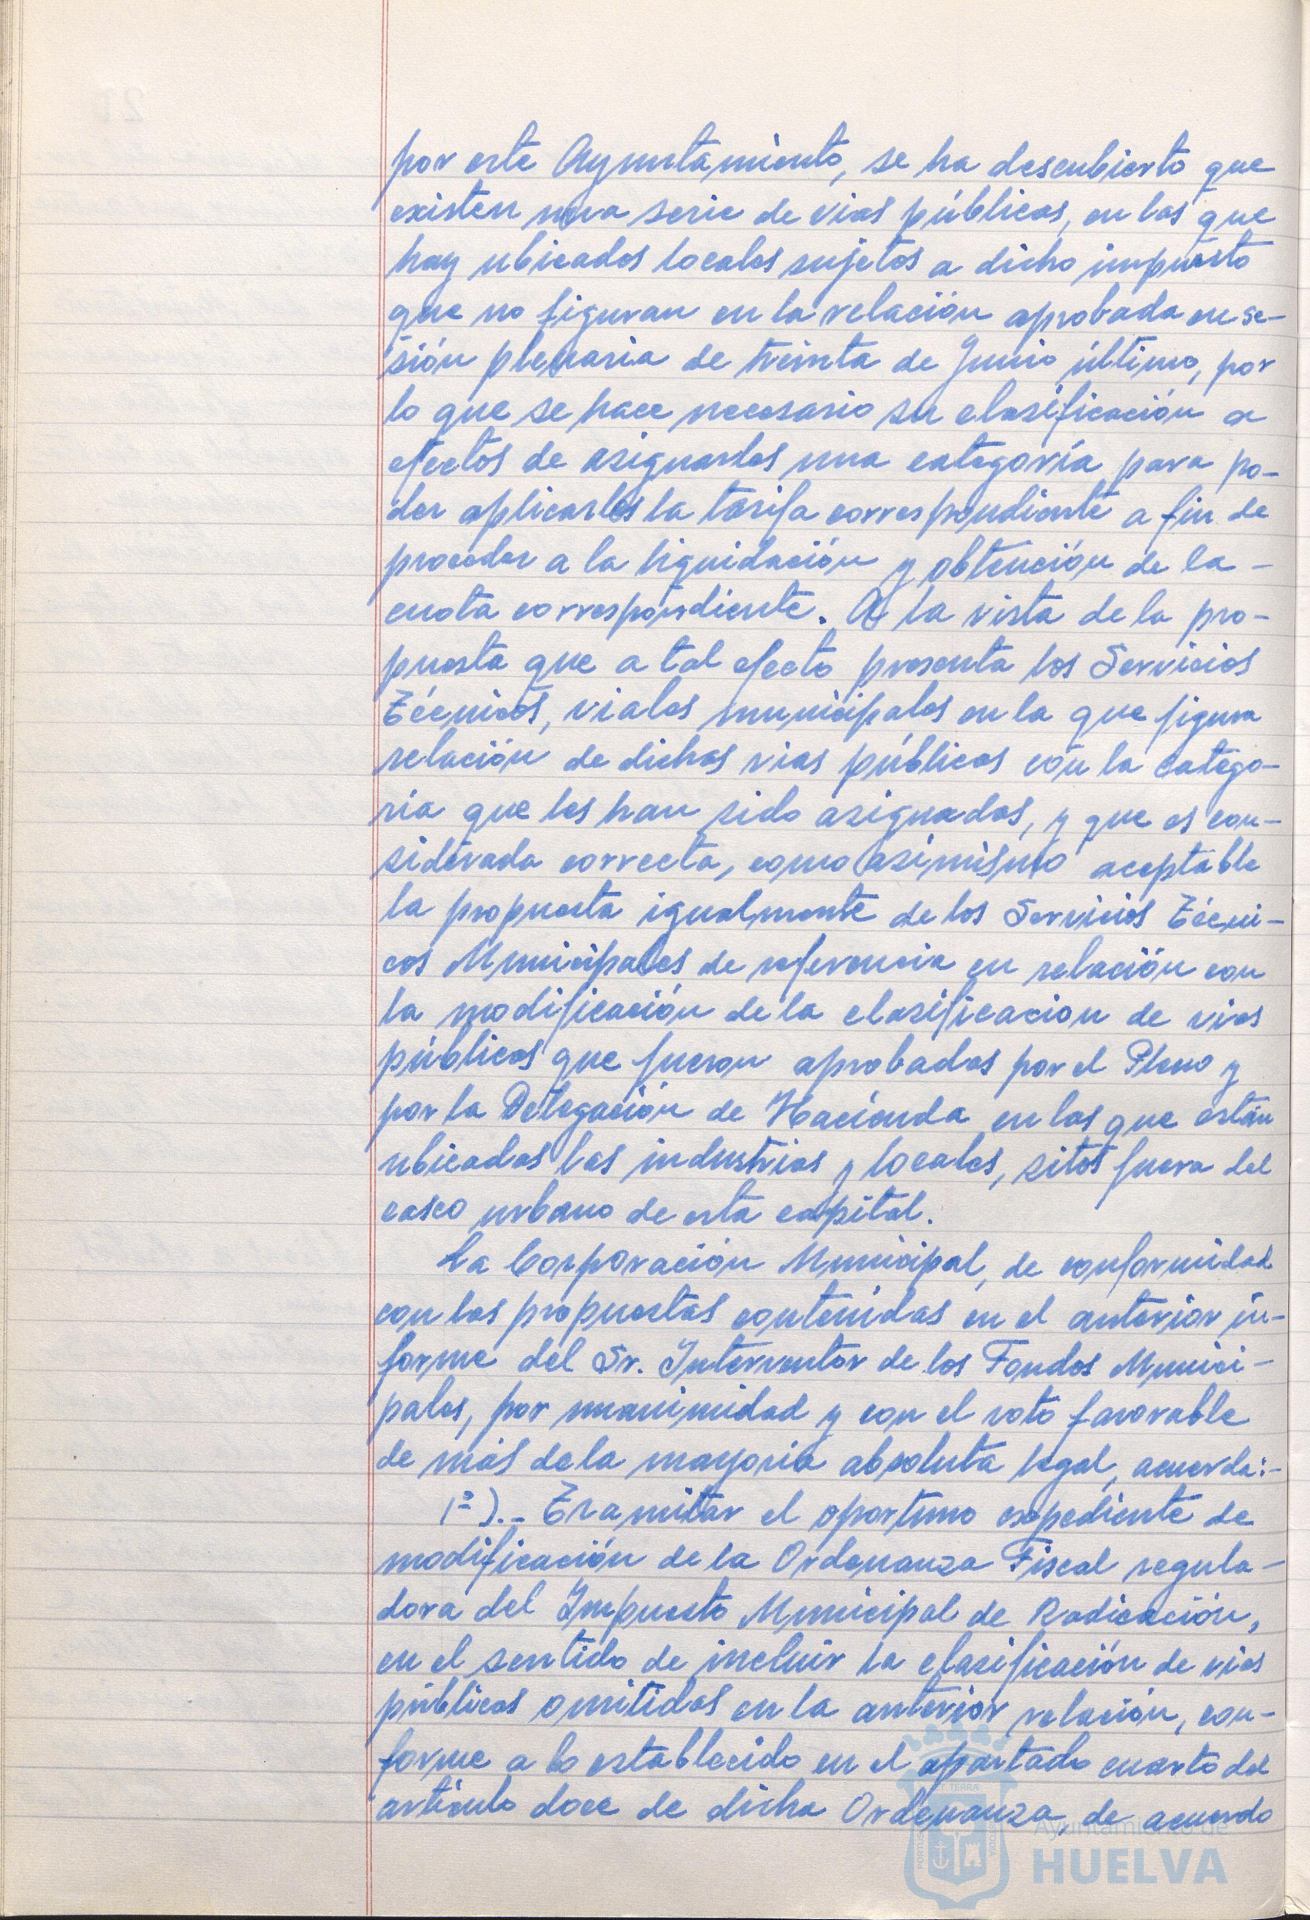 por este Ayuntamiento, se ha descubierto que
existen una serie de vias públicas, en las que
hay ubicados locales sujetos a dicho impuesto
que no figuran en la relación aprobada en se-
sión plenaria de treinta de Junio último, por
lo que se hace necesario su clasificación a
efectos de asignarles una categoría para po-
der aplicarles la tarifa correspondiente a fin de
proceder a la liquidación y obtención de la -
cuota correspondiente. A la vista de la pro-
puesta que a tal efecto presenta los Servicios
Técnicos, viales municipales en la que figura
relación de dichas vias públicas con la catego-
ría que les han sido asignadas, y que es con-
siderada correcta, como asimismo aceptable
la propuesta igualmente de los Servicios Técni-
cos Municipales de referencia en relación con
la modificación de la clasificacion de vias
públicas que fueron aprobadas por el Pleno y
por la Delegación de Hacienda en las que están
ubicadas las industrias y locales, sitos fuera del
casco urbano de esta capital.
La Corporación Municipal, de conformidad
con las propuestas contenidas en el anterior in-
forme del Sr. Interventor de los Fondos Munici-
pales, por unanimidad y con el voto favorable
de más de la mayoria absoluta legal, acuerda:-
1º).- Tramitar el oportuno expediente de
modificación de la Ordenanza Fiscal regula-
dora del Impuesto Municipal de Radicación,
en el sentido de incluir la clasificación de vias
públicas omitidas en la anterior relación, con-
forme a lo establecido en el apartado cuarto del
artículo doce de dicha Ordenanza, de acuerdo
Ayuntamiento de
HUELVA